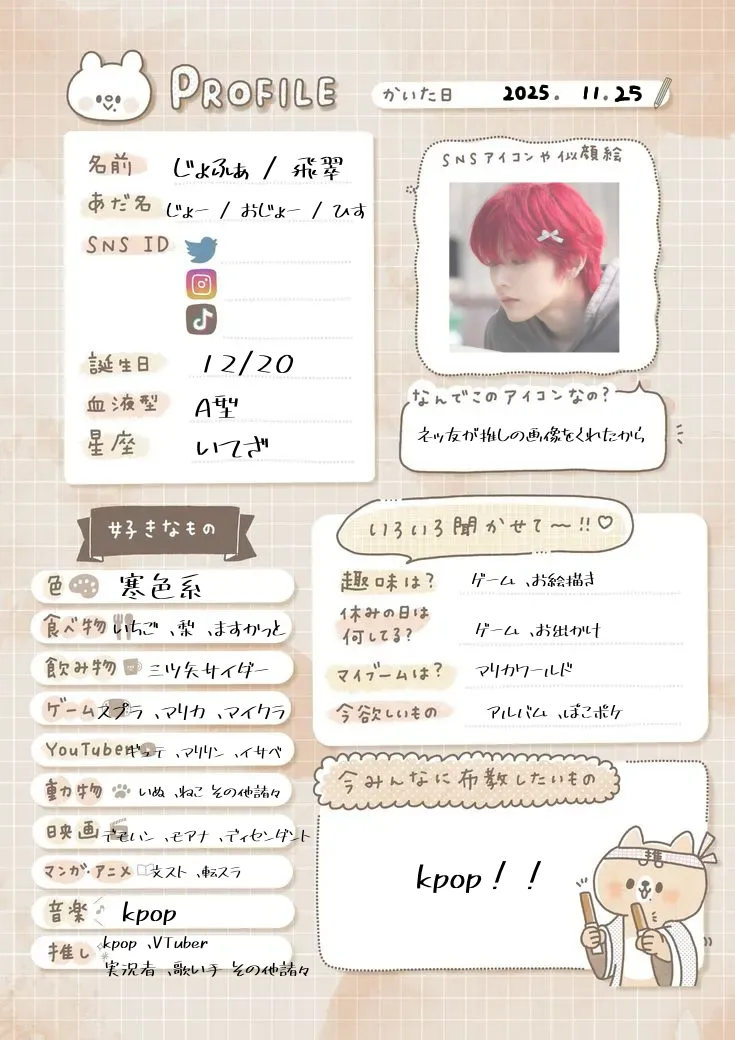 PROFILE
かいた日 2025. 11.25
名前 じょふぁ / 飛翠
あだ名 じょー / おじょー / ひす
SNS ID
誕生日 12/20
血液型 A型
星座 いてざ
SNSアイコンや似顔絵
なんでこのアイコンなの?
ネッ友が推しの画像をくれたから
好きなもの
色 寒色系
食べ物 いちご 、梨 、ますかっと
飲み物 三ツ矢サイダー
ゲーム スプラ 、マリカ 、マイクラ
YouTuber ギュテ 、マリリン 、イサベ
動物 いぬ 、ねこ その他諸々
映画 デモハン 、モアナ 、ディセンダント
マンガ・アニメ 文スト 、転スラ
音楽 kpop
推し kpop 、VTuber
実況者 、歌い手 その他諸々
いろいろ聞かせて〜!!♡
趣味は? ゲーム 、お絵描き
休みの日は
何してる? ゲーム 、お出かけ
マイブームは? マリカワールド
今欲しいもの アルバム 、ぽこポケ
今みんなに布教したいもの
kpop！！
推